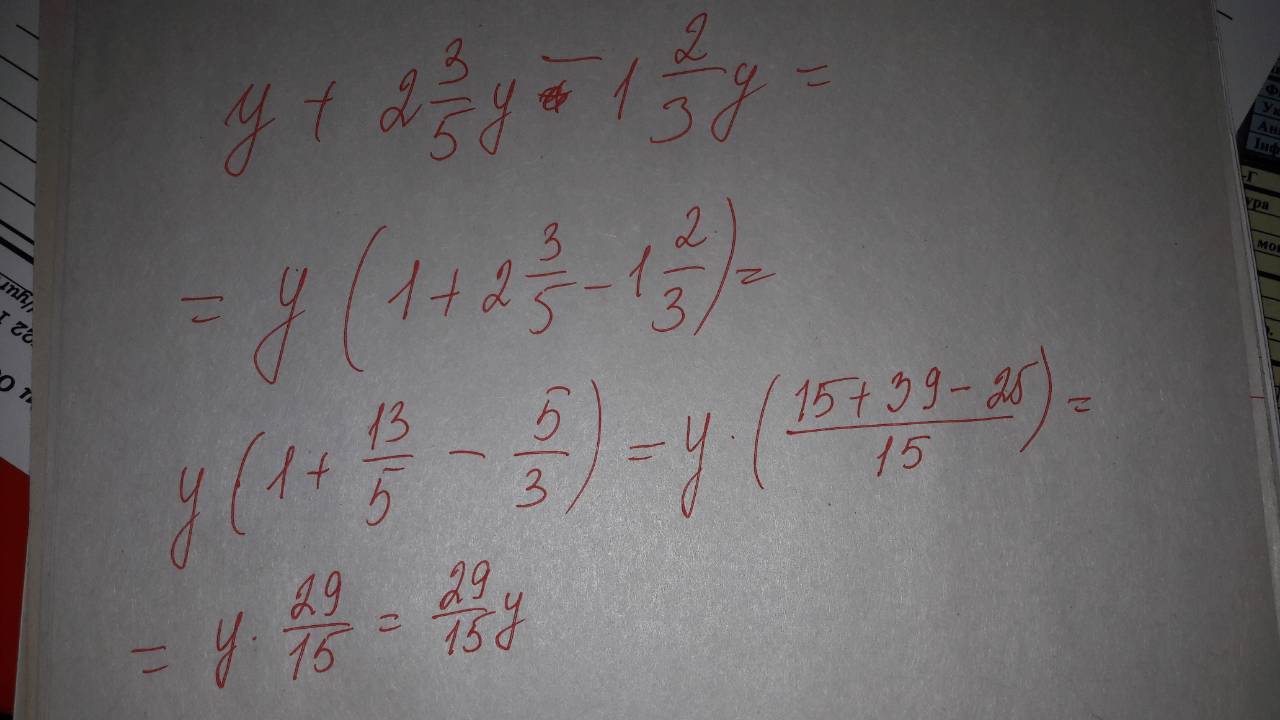 y + 2 3/5 y - 1 2/3 y =
= y (1 + 2 3/5 - 1 2/3) =
y (1 + 13/5 - 5/3) = y · ((15 + 39 - 25)/15) =
= y · 29/15 = 29/15 y